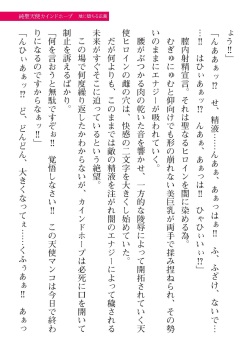 純聖天使カインドホープ　快に堕ちる正義
よう‼」
「んあぁぁッ⁉　せ、精液……んあぁ、あぁぁはぁぁ‼　ふ、ふざけ、ないで
…⁉　はぁぁぁ⁉　んあぁ、あぁぁ⁉　はぁぁ‼　ひゃひぃぃ⁉」
膣内射精宣言。それは聖なるヒロインを闇に染める為。
むぎゅにゅむと仰向けでも形の崩れない美巨乳が両手で揉み捏ねられ、その勢
いのままにエナジーが吸われていく。
腰がぶつかる肉の乾いた音を響かせ、一方的な陵辱によって開拓されていく天
使ヒロインの雌穴は、快感の二文字を大きくし始めていた。
だが何よりも、このままでは敵の精液を注がれ闇のエナジーによって穢される
未来がすぐそこに迫っているという絶望。
この場で何度繰り返したかわからないが、カインドホープは必死に口を開いて
制止を訴えるばかり。
「何を言おうと無駄ですぞぉ⁉　覚悟しなさい‼　この天使マンコは今日で終わ
りになるのですからなぁっ‼」
「んひぃあぁぁッ⁉　ど、どんどん、大きくなってぇ……くふぅあぁ‼　あぁっ